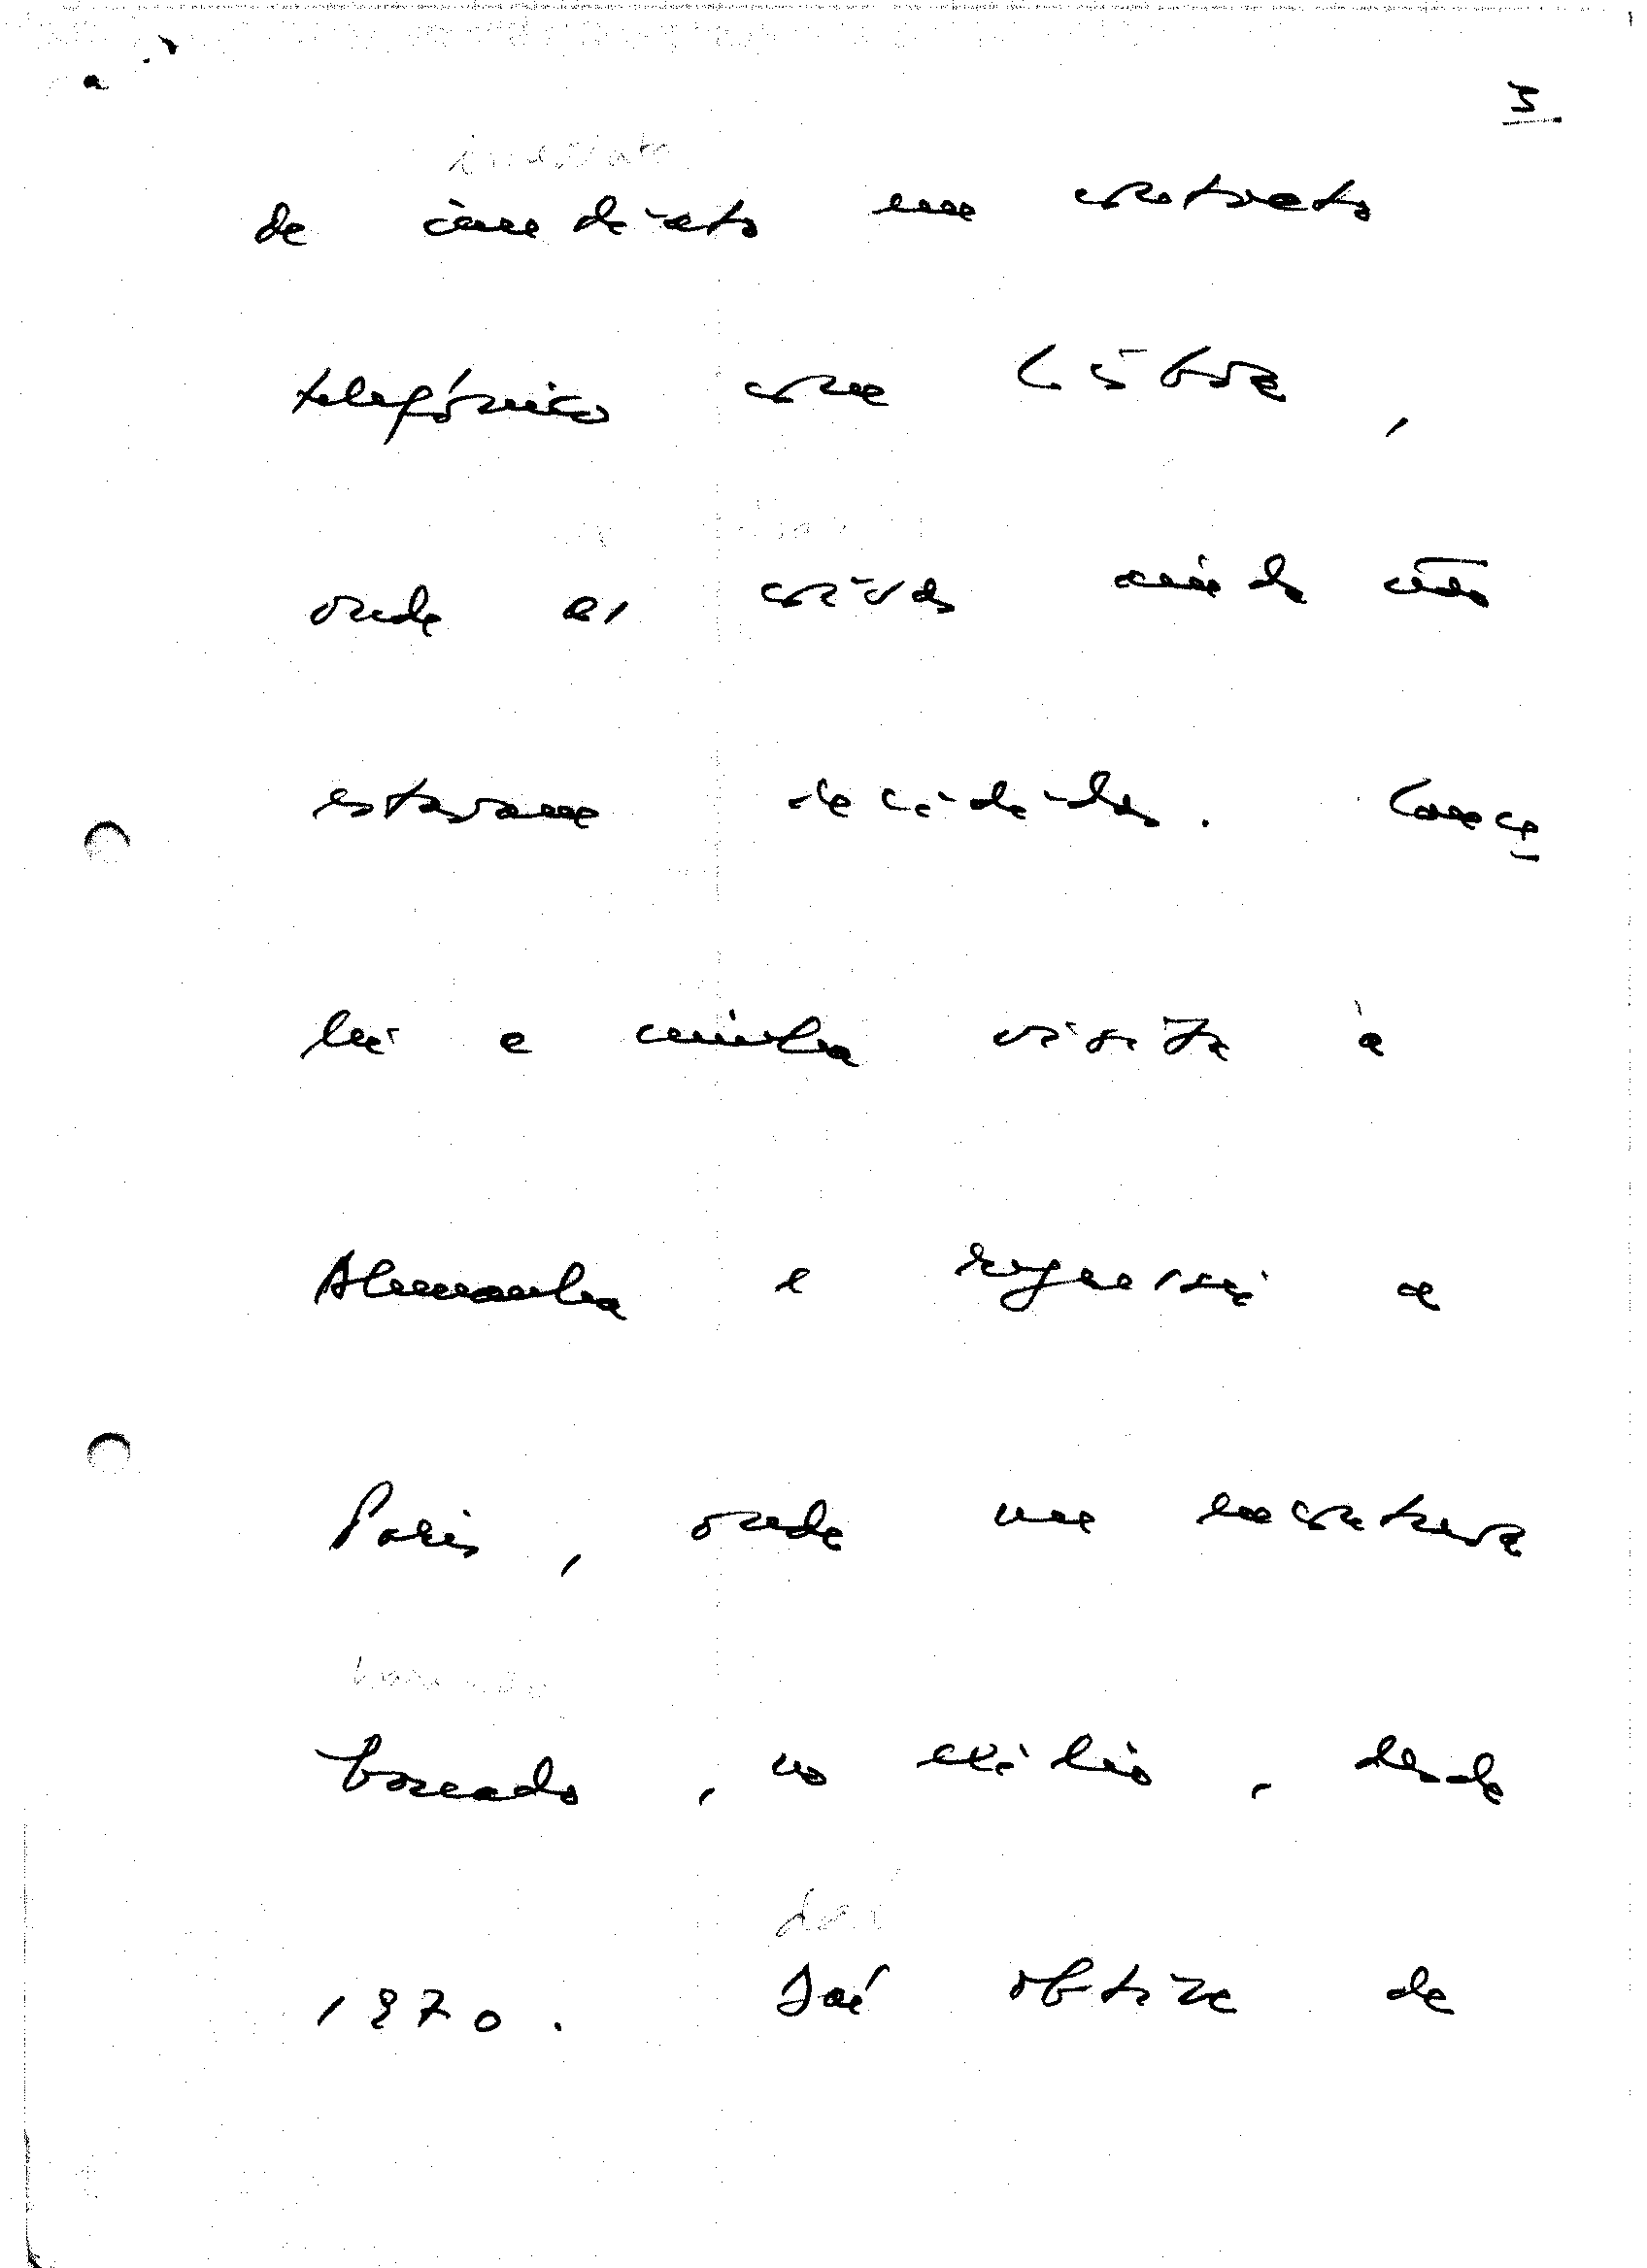 3
de imediato em contacto
telefónico com Lisboa,
onde as coisas ainda não
estavam decididas. Cance
lei a minha visita à
Alemanha e regressei a
Paris, onde me encontrava
banido, no exílio, desde
1970. Daí obtive de